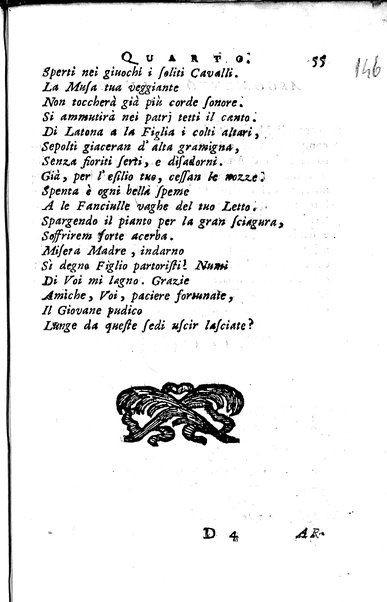 QUARTO. 55
146
Sperti nei giuochi i ſoliti Cavalli.
La Muſa tua veggiante
Non toccherà già più corde ſonore.
Si ammutirà nei patrj tetti il canto.
Di Latona a la Figlia i colti altari,
Sepolti giaceran d'alta gramigna,
Senza fioriti ſerti, e diſadorni.
Già, per l'eſilio tuo, ceſſan le nozze:
Spenta è ogni bella ſpeme
A le Fanciulle vaghe del tuo Letto.
Spargendo il pianto per la gran ſciagura,
Soffrirem ſorte acerba.
Miſera Madre, indarno
Sì degno Figlio partoriſti! Numi
Di Voi mi lagno. Grazie
Amiche, Voi, paciere fortunate,
Il Giovane pudico
Lunge da queſte ſedi uſcir laſciate?
D 4 AR-